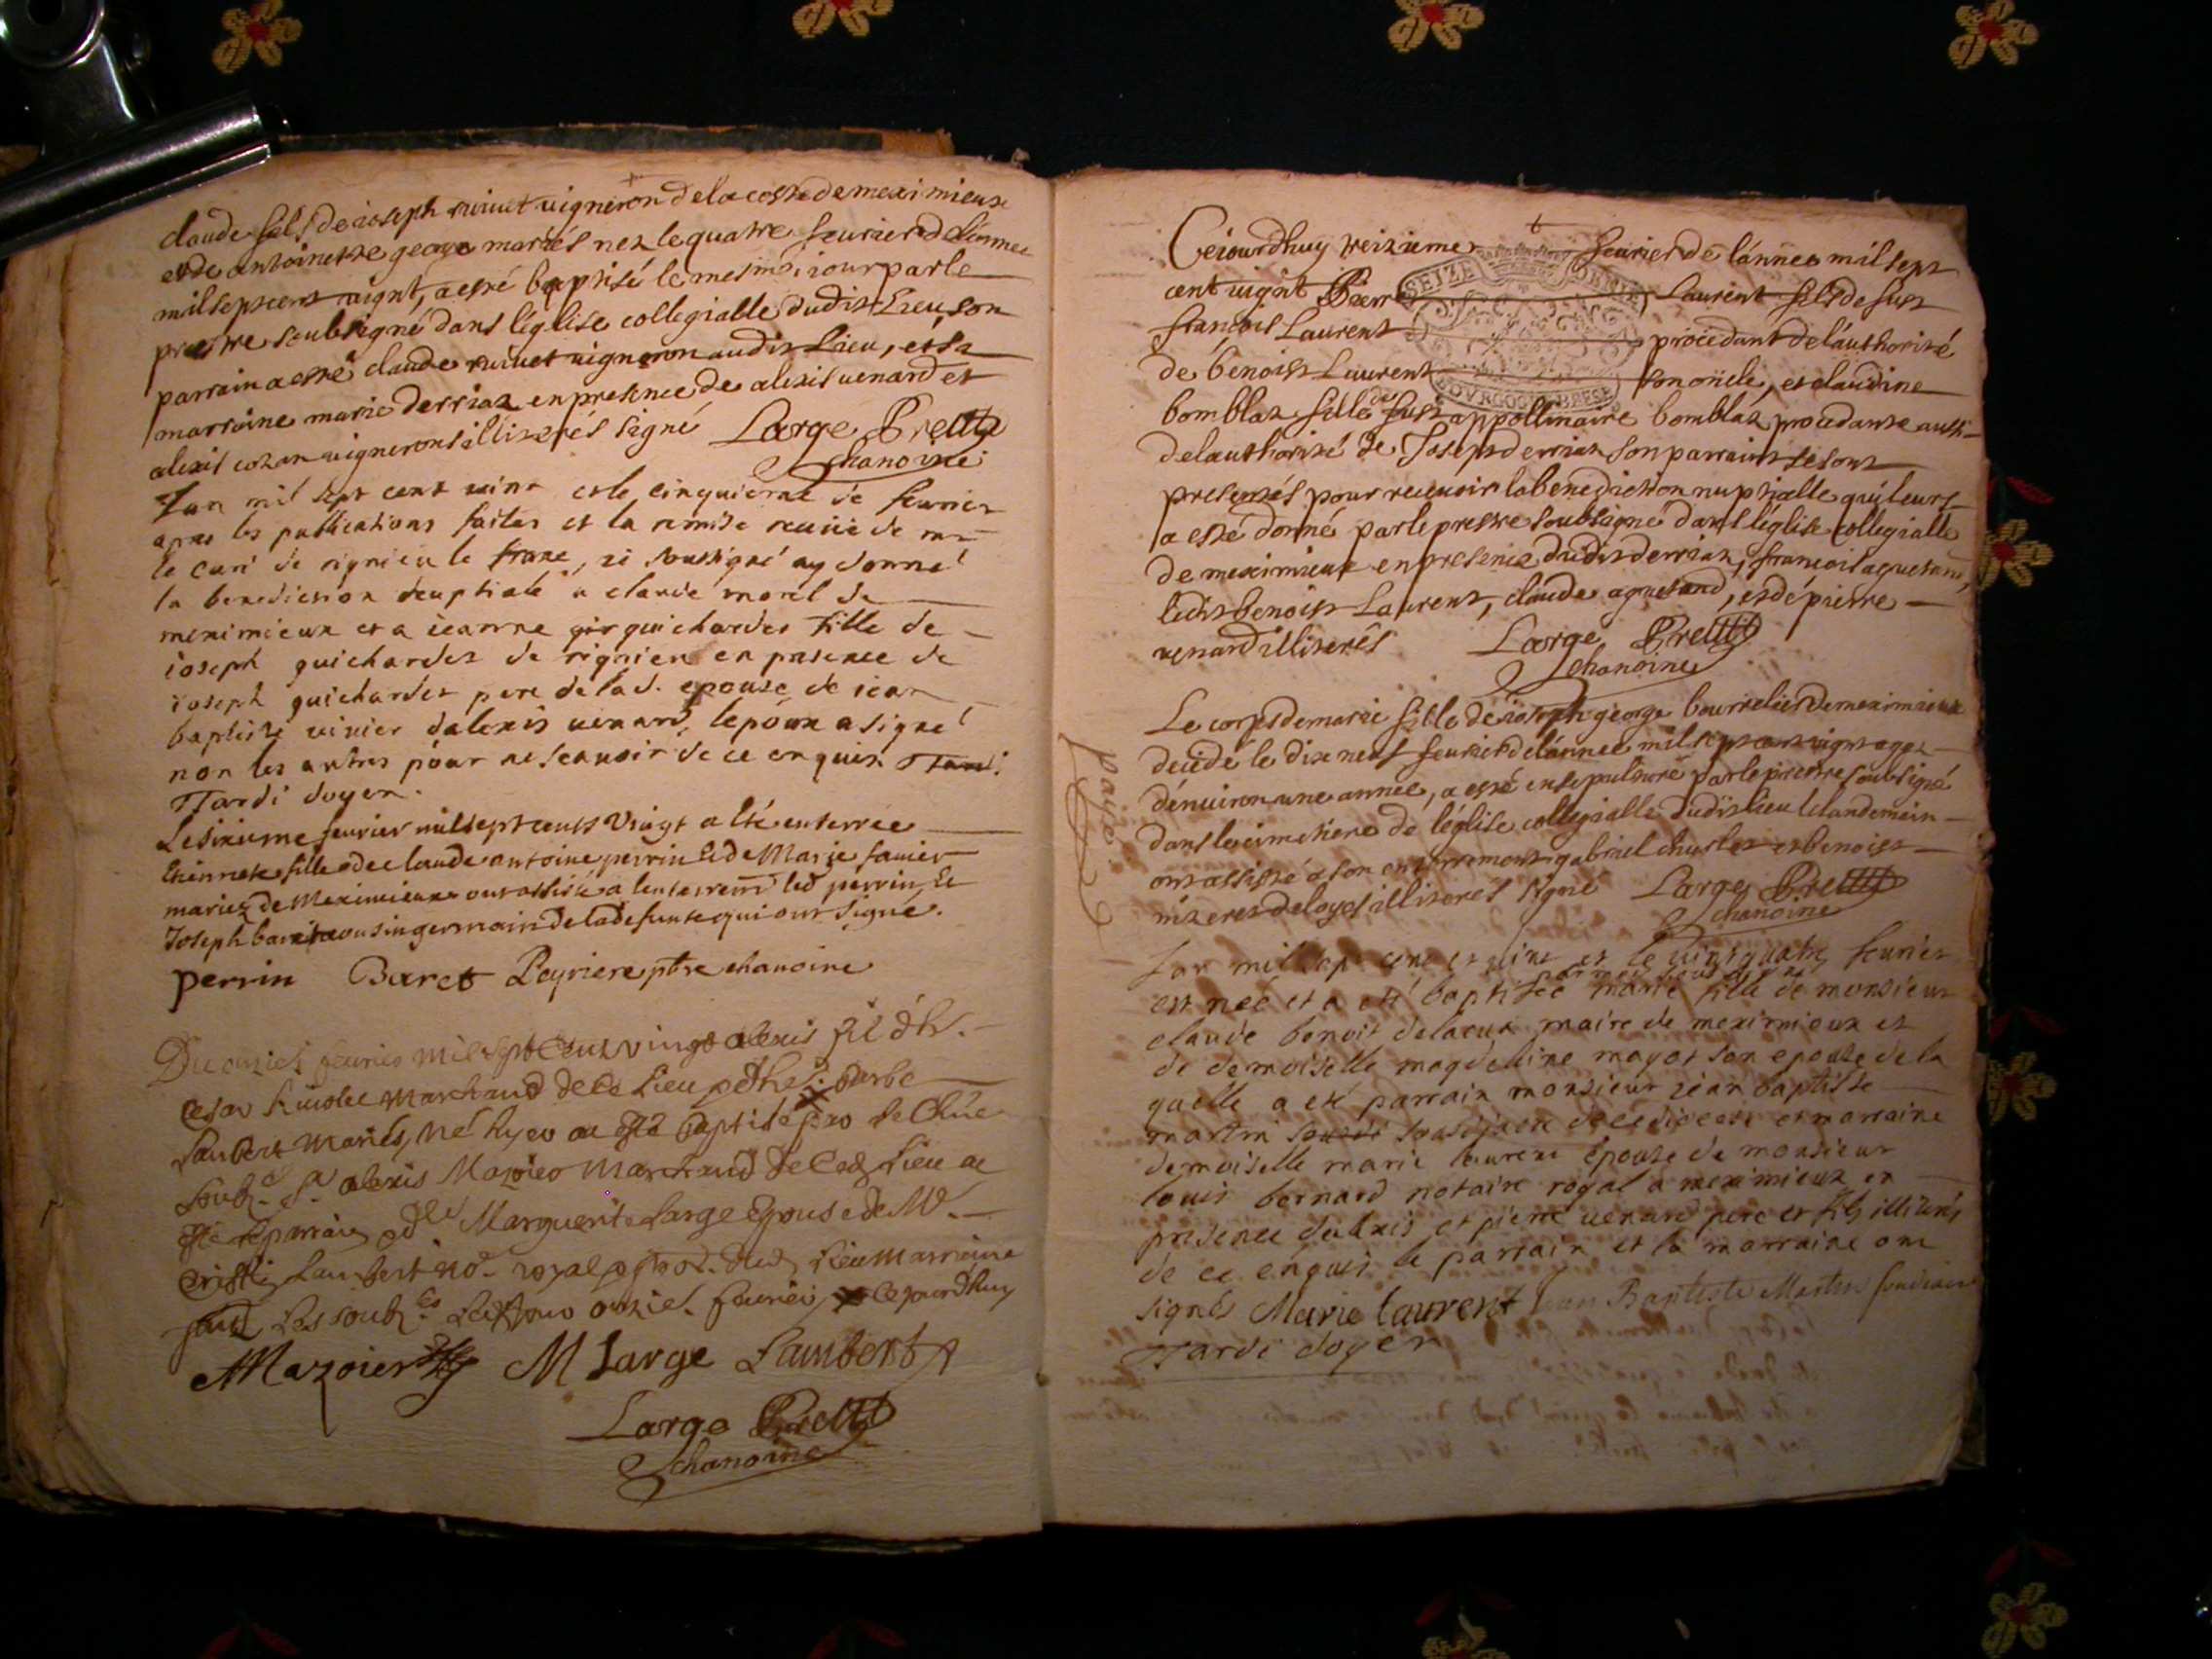 claude fils de ioseph riuiet uigneron de la coste de meximieux
et de antoinette george mariés nez le quatre feurier de lánnee
mil sept cent uignt, a esté baptisé le mesme iour par le
prestre soubsigné dans léglise collegialle dudit Lieu, son
parrain a esté claude riuiet uigneron audit Lieu, et sa
marraine marie derriaz en presence de alexis uenard et
alexis cozan uignerons illiterés signé Large Prettre
chanoine
Lan mil sept cent uint et le cinquieme de feurier
apres les publications faites et la remise receüe de mr
le curé de rignieu le franc, ie soussigné ay donné
la benediction nuptiale a claude morel de
meximieux et a ieanne guichardet fille de
ioseph guichardet de rignieu en presence de
ioseph guichardet pere de la d. epouse de iean
baptiste uiuier dalexis uenard, lepoux a signé
non les autres pour ne scauoir de ce enquis Tardi
Tardi doyen.
Le sixieme feurier mil sept cents Vingt a été enterrée
Etiennete fille de claude antoine perrin et de Marie fauier
mariez de Meximieux ont assisté a lenterremt led perrin, et
Joseph baret cousin germain de la defunte qui ont signé.
perrin Baret Peyriere ptre chanoine
Du onzies feurier mil sept cents vingt alexis fil dhr.
Cesar marchand de ce Lieu barbe
Lambert mariés, né hyer a esté baptisé
soubz. Sr alexis Mazoier marchand de ced Lieu a
esté le parrain Marguerite Large Epouse de Mr.
Lambert no. royal dud Lieu marraine
Les soubz. onzies. feurier ce jourdhuy
AMazoier M Large Lambert
Large Prettre
chanoine
Ceiourdhuy treizieme feurier de lánnee mil sept
cent uignt Pierre Laurent fils de fust
françois Laurent procedant de láuthorité
de benoist Laurent son oncle, et claudine
bomblaz fille de fust appollinaire bomblaz procedante aussi
de lauthorité de Joseph derriaz son parraint se sont
presentés pour receuoir la benediction nuptialle qui leurs
a esté donné par le prestre soubsigné dans léglise collegialle
de meximieux en presence dudit derriaz, françois aguetand,
ledit benoist Laurent, claude aguetand, et de pierre
uenard illiterés Large Prettre
chanoine
paye
Le corps de marie fille de ioseph george bourrelier de meximieux
decedé le dixneuf feurier de lánnee mil sept cent uignt agez
dénuiron une année, a esté ensepulturé par le prestre soubsigné
dans le cimetiere de léglise collegialle dudit lieu le landemain
ont assisté a son enterrement gabriel et benoist
illiterés signé Large Prettre
chanoine
Lan mil sept cent et uint et le uint quatre feurier
est neé et a eté baptiseé marie fille de monsieur
claude benoit delacua maire de meximieux et
de demoiselle magdelaine mayot son epouse de la
quelle a eté parrain monsieur iean baptiste
martin sousdiacre de ce diocese et marraine
demoiselle marie laurent epouse de monsieur
louis bernard notaire royal a meximieux en
presence dalexis et pierre uenard pere et fils illiterés
de ce enquis le parrain et la marraine ont
signés Marie laurent Jean Baptiste Martin soudiacre
Tardi doyen